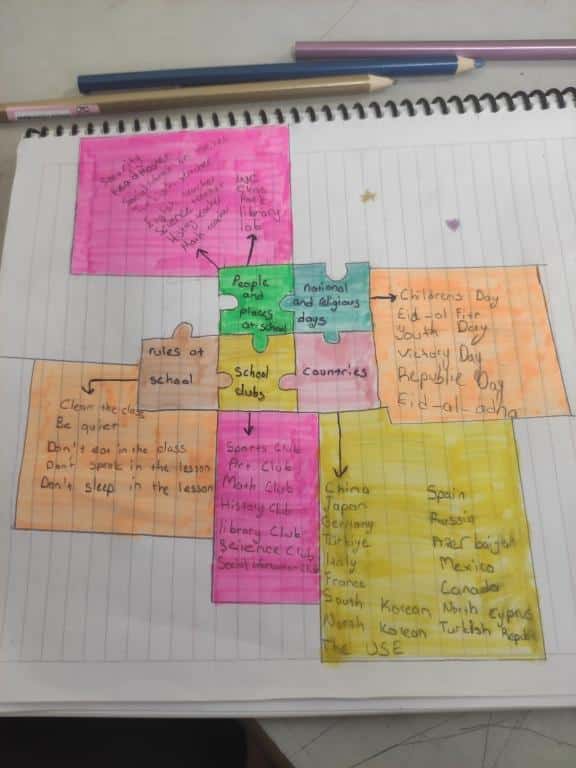 Security
Head Master
teacher
teacher
Science teacher
History teacher
Math teacher
WC
Class
Park
library
lab
People
and
places
at school
national
and religious
days
Childrens Day
Eid-al Fitr
Youth Day
Victory Day
Republic Day
Eid-al-adha
rules at
school
School
clubs
countries
Clean the class
Be quier
Don't in the class
Don't speak in the lesson
Don't sleep in the lesson
Sports Club
Art Club
Math Club
History Club
library Club
Science Club
Social information Club
China
Japan
Germany
Türkiye
Italy
France
South Korean
North Korean
The USE
Spain
Russia
Azerbaijan
Mexico
Canada
North Cyprus
Turkish Republic